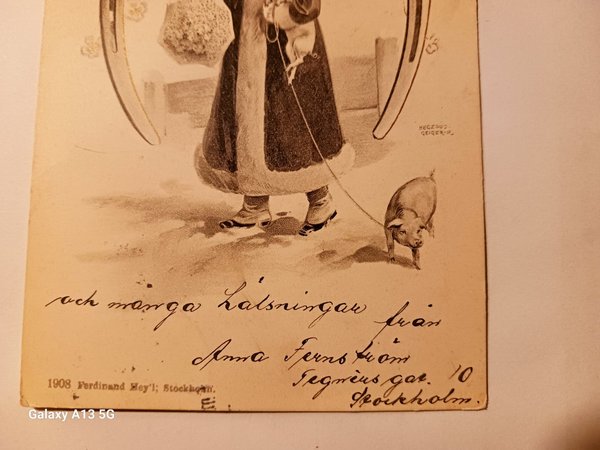 HEGEDUS-
GEIGER-R.
och många hälsningar från
Anna Fernström
Tegnérs gat. 10
Stockholm.
1908 Ferdinand Hey'l; Stockholm.
Galaxy A13 5G